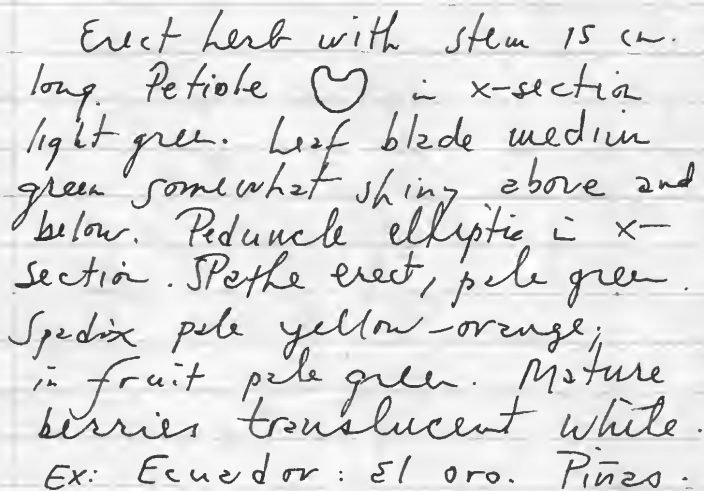 Erect herb with stem 15 cm.
long. Petiole in x-section
light green. Leaf blade medium
green somewhat shiny above and
below. Peduncle elliptic in x-
section. Spathe erect, pale green.
Spadix pale yellow-orange,
in fruit pale green. Mature
berries translucent white.
Ex: Ecuador: El Oro. Piñas.